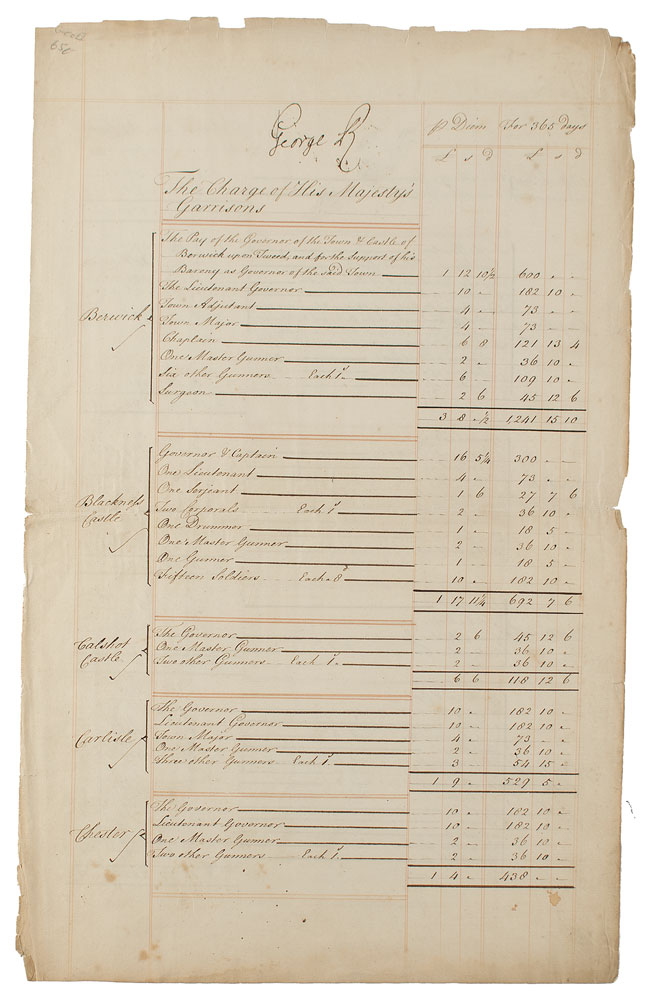 656
George R
p Diem For 365 days
£ s d £ s d
The Charge of His Majesty's
Garrisons
The Pay of the Governor of the Town & Castle of
Berwick upon Tweed, and for the Support of his
Barony as Governor of the said Town 1 12 10½ 600 " "
The Lieutenant Governor 10 " 182 10 "
Town Adjutant 4 " 73 " "
Berwick
Town Major 4 " 73 " "
Chaplain 6 8 121 13 4
One Master Gunner 2 " 36 10 "
Six other Gunners Each 1s 6 " 109 10 "
Surgeon 2 6 45 12 6
3 8 " ½ 1241 15 10
Governor & Captain 16 5¼ 300 " "
One Lieutenant 4 " 73 " "
One Serjeant 1 6 27 7 6
Blackness
Castle
Two Corporals Each 1s 2 " 36 10 "
One Drummer 1 " 18 5 "
One Master Gunner 2 " 36 10 "
One Gunner 1 " 18 5 "
Fifteen Soldiers Each 8d 10 " 182 10 "
1 17 11¼ 692 7 6
Calshot
Castle
The Governor 2 6 45 12 6
One Master Gunner 2 " 36 10 "
Two other Gunners Each 1s 2 " 36 10 "
6 6 118 12 6
The Governor 10 " 182 10 "
Lieutenant Governor 10 " 182 10 "
Carlisle
Town Major 4 " 73 " "
One Master Gunner 2 " 36 10 "
Three other Gunners Each 1s 3 " 54 15 "
1 9 " 529 5 "
The Governor 10 " 182 10 "
Lieutenant Governor 10 " 182 10 "
Chester
One Master Gunner 2 " 36 10 "
Two other Gunners Each 1s 2 " 36 10 "
1 4 " 438 " "